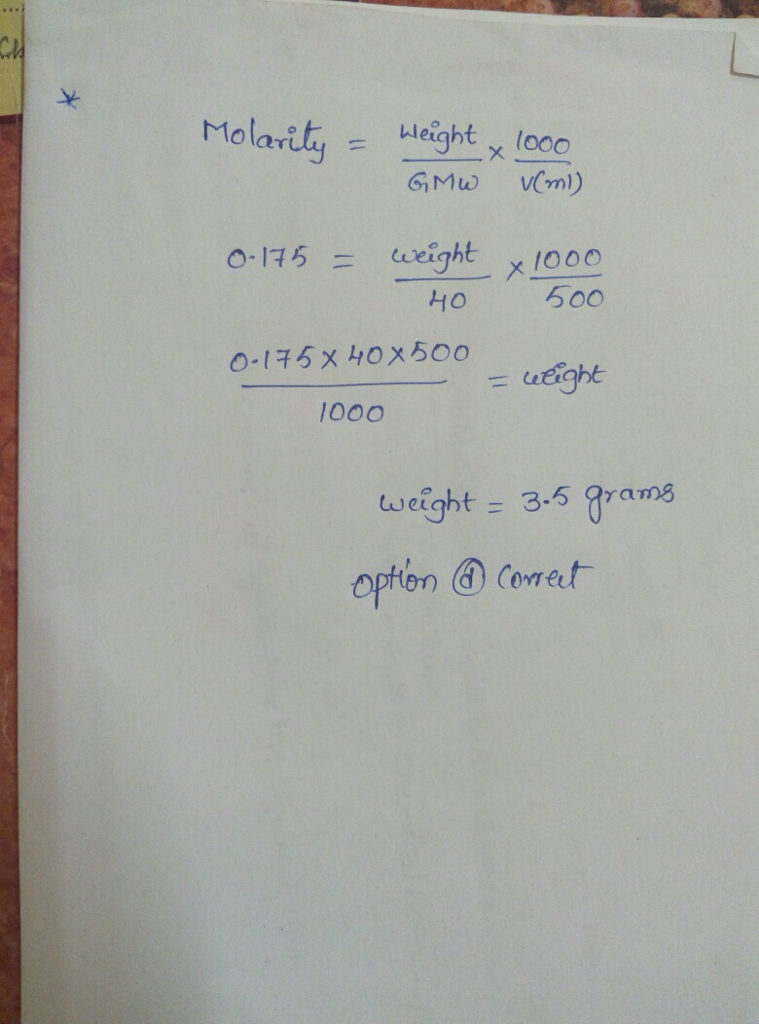 *
Molarity = Weight/GMW × 1000/V(ml)
0.175 = weight/40 × 1000/500
0.175 × 40 × 500/1000 = weight
weight = 3.5 grams
option ⓓ Correct